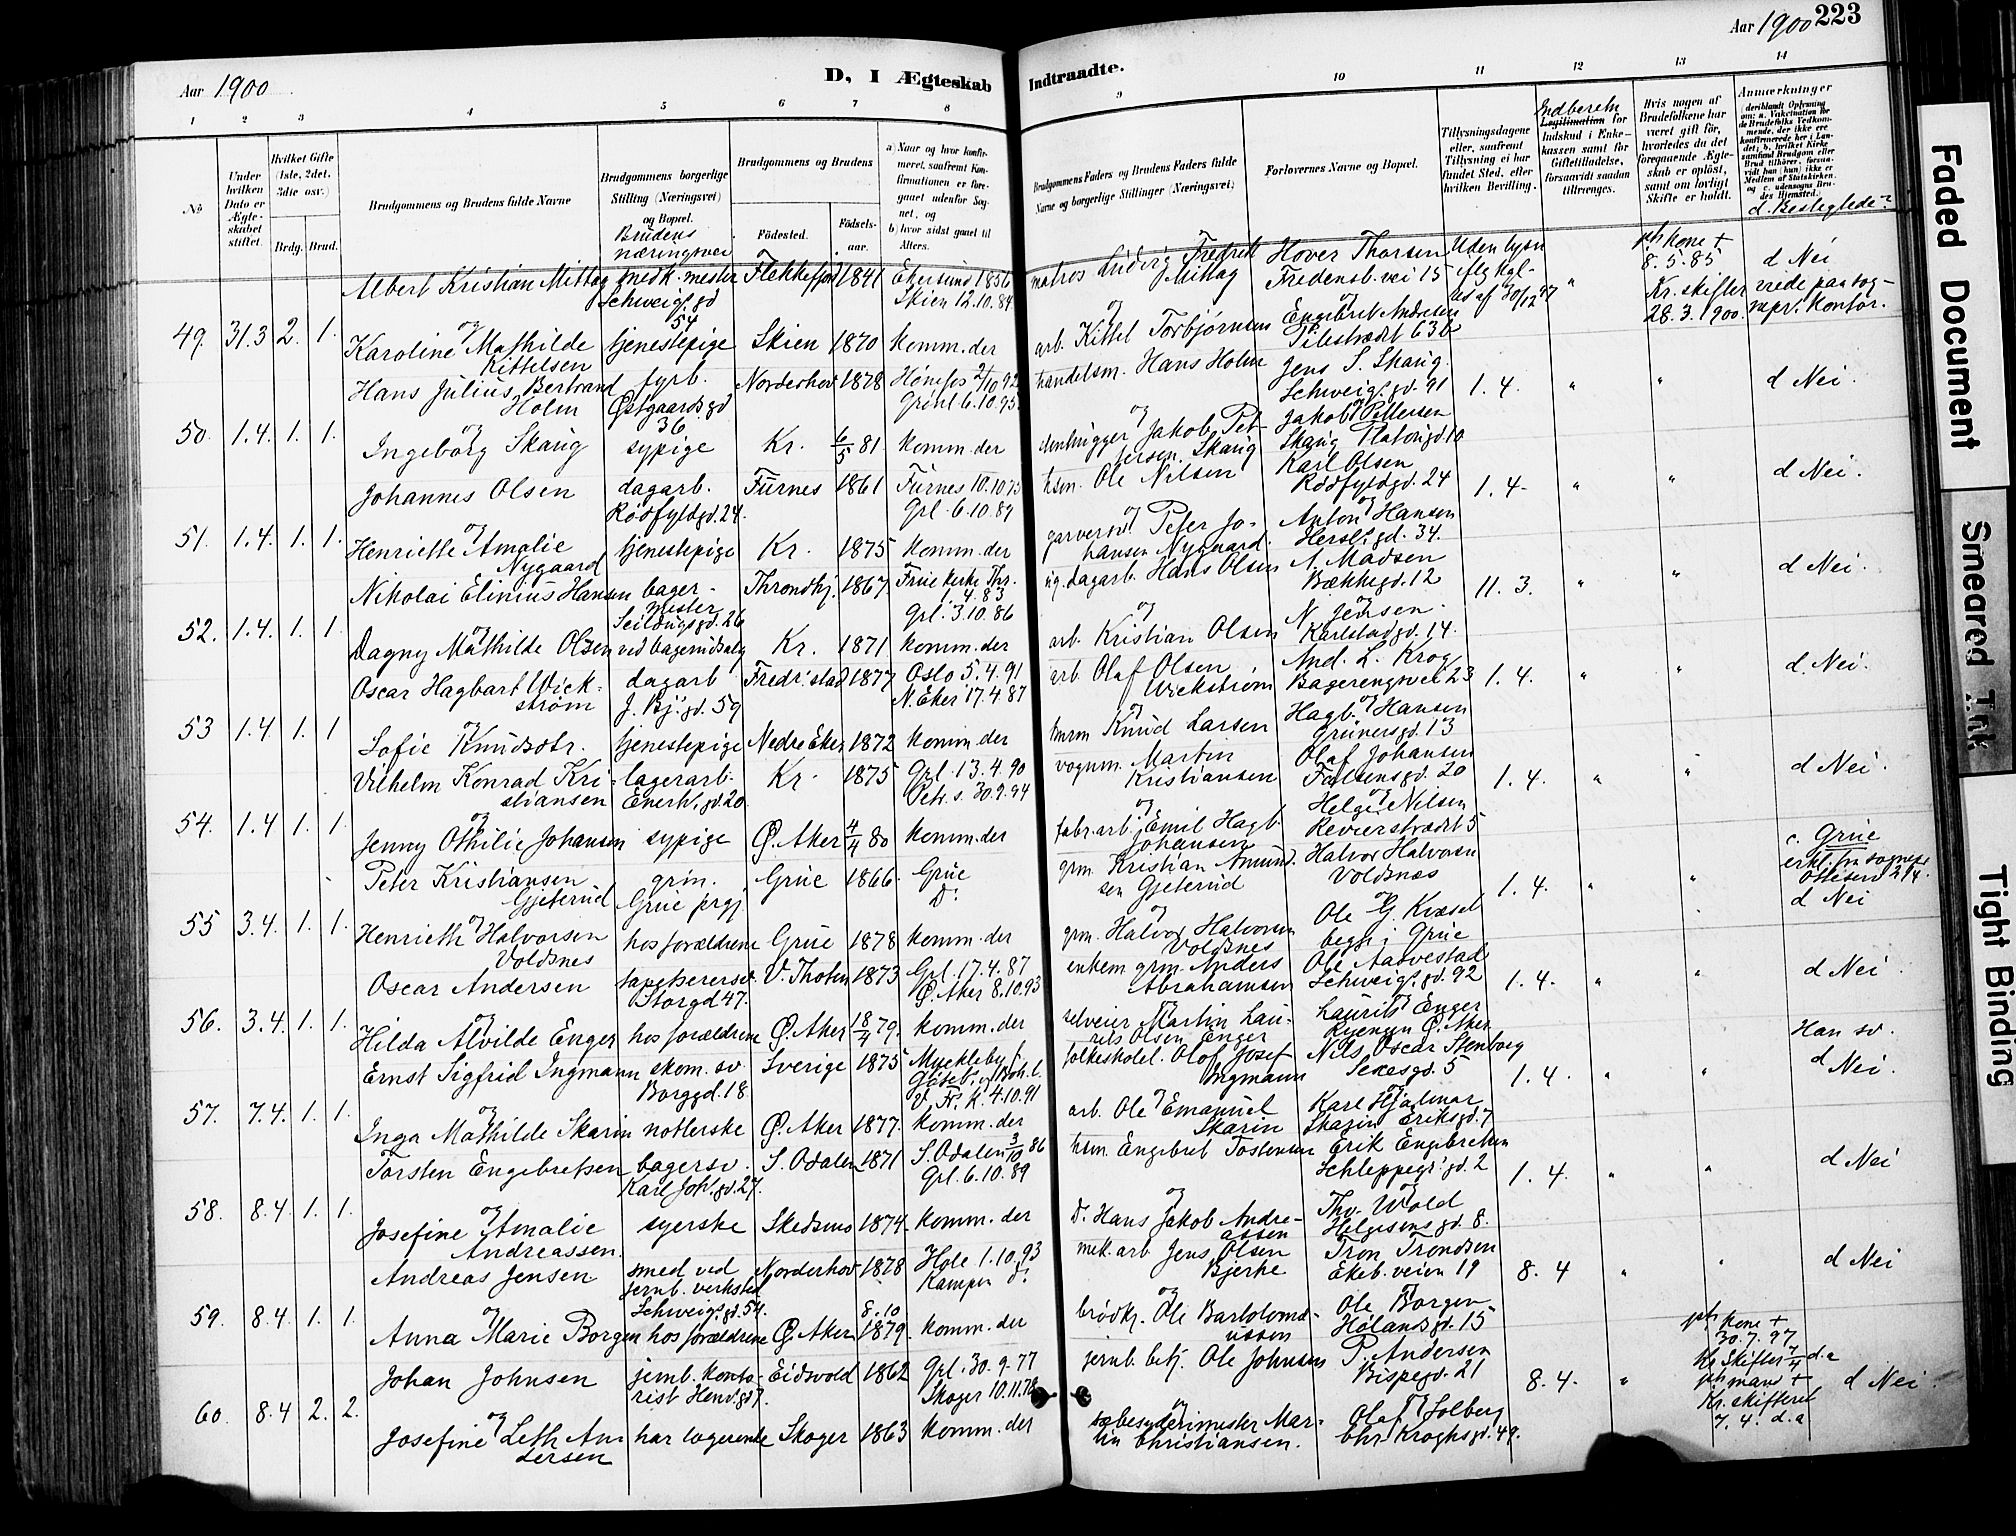 Aar 1900
D, I Ægteskab
Indtraadte.
Aar 1900 223
1 2 3 4 5 6 7 8
9 10 11 12 13 14
No
Under hvilken Dato er Ægteskabet stiftet.
Hvilket Gifte (1ste, 2det, 3die osv.)
Brdg. Brud.
Brudgommens og Brudens fulde Navne
Brudgommens borgerlige Stilling (Næringsvei) og Bopæl.
Brudens næringsvei
Brudgommens og Brudens
Fødested. Fødselsaar.
a) Naar og hvor konfirmeret, saafremt Konfirmationen er foregaaet udenfor Sognet, og
b) hvor sidst gaaet til Alters.
Brudgommens Faders og Brudens Faders fulde Navne og borgerlige Stillinger (Næringsvei)
Forlovernes Navne og Bopæl.
Tillysningsdagene eller, saafremt Tillysning ei har fundet Sted, efter hvilken Bevilling.
Indberetn
Legitimation for Indskud i Enkekassen samt for Giftetilladelse, forsaavidt saadan tiltrænges.
Hvis nogen af Brudefolkene har været gift før, hvorledes da det foregaaende Ægteskab er opløst, samt om lovligt Skifte er holdt.
Anmærkninger
d. Beslegtede?
49. 31.3 2. 1.
Albert Kristian Mittag smedk. mester Flekkefjord 1841 Ekersund 1856
Schweigs. gd 54 Skien 12.10.84
matros Ludvig Fredrik Mittag Hover Thorsen Fredensb. vei 15
Uden lysn
ifl. kgl.
res af 30/12 47
ph kone +
8.5.85
Kr. skifter
28.3.1900.
d Nei
og
Karoline Mathilde Kittelsen tjenestepige Skien 1870 komm. der
arb. Kittel Torbjørnsen Engebret Andersen Pilestrædet 63b
50. 1.4. 1. 1.
Hans Julius Bertrand Holm fyrb. Østgaards gd 36 Norderhov 1878 Hønefos 2/10 92
Grønl. 6.10.95
handelsm. Hans Holm Jens S. Skaug Schweigs. gd. 91 1.4. " " d Nei.
og
Ingeborg Skaug sypige Kr. 6/5 81 komm. der
stenhugger Jakob Pettersen Skaug Jakob Pettersen Skaug Platousgd. 10
51. 1.4. 1. 1.
Johannes Olsen dagarb. Rødfyldgd. 24. Furnes 1861 Furnes 10.10.75
Grl. 6.10.89
hsm. Ole Nilsen Karl Olsen Rødfyldgd. 24 1.4. " " d Nei.
og
Henriette Amalie Nygaard tjenestepige Kr. 1875 komm. der
garversv. Peter Johansen Nygaard Anton Hansen Herslebs gd. 34.
52. 1.4. 1. 1.
Nikolai Elinius Hansen bagermester Seildugsgd. 26 Throndhj. 1867 Frue kirke Thr.
1.4.83
Grl. 3.10.86
ug. dagarb. Hans Olsen A. Madsen Bækkegd. 12 11.3. " " d Nei.
og
Dagny Mathilde Olsen ved bagerudsalg Kr. 1871 komm. der
arb. Kristian Olsen N. Jensen Karlstadgd. 14.
53 1.4. 1. 1
Oscar Hagbart Wickstrøm dagarb J. Bj. gd. 59 Fredr.stad 1877 Oslo 5.4.91
N. Eker 17.4.87
arb. Olaf Olsen Wickstrøm And. L. Krog Bagerengveien 23 1.4. " " d. Nei.
og
Sofie Knudsdtr. tjenestepige Nedre Eker 1872 komm. der
tmrm Knud Larsen Hagb. Hansen Grünersgd. 13
54. 1.4 1. 1.
Vilhelm Konrad Kristiansen lagerarb. Enerh. gd. 20 Kr. 1875 Grl. 13.4.90
Petr. s. 30.9.94
vognm. Martin Kristiansen Olaf Johansen Falsensgd. 20 1.4. " " d Nei.
og
Jenny Othilie Johansen sypige Ø. Aker 4/4 80 komm. der
fabr. arb. Emil Hagb. Johansen Helge Nilsen Revierstrædet 5
55 3.4. 1. 1.
Peter Kristiansen Gjeterud grm. Grue prgj. Grue 1866. Grue
Do
grm. Kristian Amundsen Gjeterud Halvor Halvorsen Voldsnæs 1.4. " "
c. Grue
erkl. fra sognepr.
Ottesen 2/4.
d Nei
og
Henriette Halvorsen Voldsnes hos forældrene Grue 1878 komm. der
grm. Halvor Halvorsen Voldsnes Ole G. Kvæsel begge i Grue
56. 3.4. 1. 1.
Oscar Andersen tapetserersv. Storgd 47. V. Thoten 1873 Grl. 17.4.87
Ø. Aker 8.10.93
enkem. grm. Anders Abrahamsen Ole Aarvestad Schweigs. gd. 92 1.4. " " d Nei.
og
Hilda Alvilde Enger hos forældrene Ø. Aker 18/4 79. komm. der
selveier Martin Laurits Olsen Enger Laurits Enger Ryengen Ø. Aker
57. 7.4. 1. 1.
Ernst Sigfrid Ingmann skom. sv. Borggd. 18 Sverige 1875 Myckleby
Göteb. og Boh. l.
V. Fr. K. 4.10.91
folkeskolel. Olof Josef Ingmann Nils Oscar Stenborg Sexesgd. 5 1.4. " "
Han sv.
d Nei.
og
Inga Mathilde Skarin notterske Ø. Aker 1877. komm. der
arb. Ole Emanuel Skarin Karl Hjalmar Skarin Eriksgd. 7
58. 8.4. 1. 1.
Torsten Engebretsen bagersv. Karl Joh. gd. 27. S. Odalen 1871 S. Odalen 3/10 86
Grl. 6.10.89
hsm. Engebret Tostensen Erik Engebretsen Schleppegr. gd. 2 1.4. " " d Nei
og
Josefine Amalie Andreassen. syerske Skedsmo 1874. komm. der
d. Hans Jakob Andreassen Thv. Wold Helgesensgd. 8.
59. 8.4. 1. 1.
Andreas Jensen smed ved jernb. verksted Schweigs. gd. 54. Norderhov 1878 Hole 1.10.93
Kampen Do
mek. arb. Jens Olsen Bjerke Tron Trondsen Ekeb. veien 19 8.4 " " d Nei
og
Anna Marie Borgen hos forældrene Ø. Aker 8.10 1879. komm. der
brødkj. Ole Bartolomæussen Ole Borgen Hølandsgd. 15
60. 8.4 2. 2.
Johan Johnsen jernb. kontorist Henr. gd 7. Eidsvold 1862 Grl. 30.9.77
Skoger 10.11.78
jernb. betj. Ole Johnsen P. Andersen Bispegd. 21 8.4. "
ph kone +
30.7.97
Kr. Skifter 7/4 d.a
ph mand +
Kr. skifteret
7.4. d.a
d Nei.
og
Josefine Leth Andersen har logerende Skoger 1863 komm. der
sæbesyderimester Martin Christiansen. Olaf Solberg Chr. Kroghsgd. 49.
Faded Document
Smeared Ink
Tight Binding